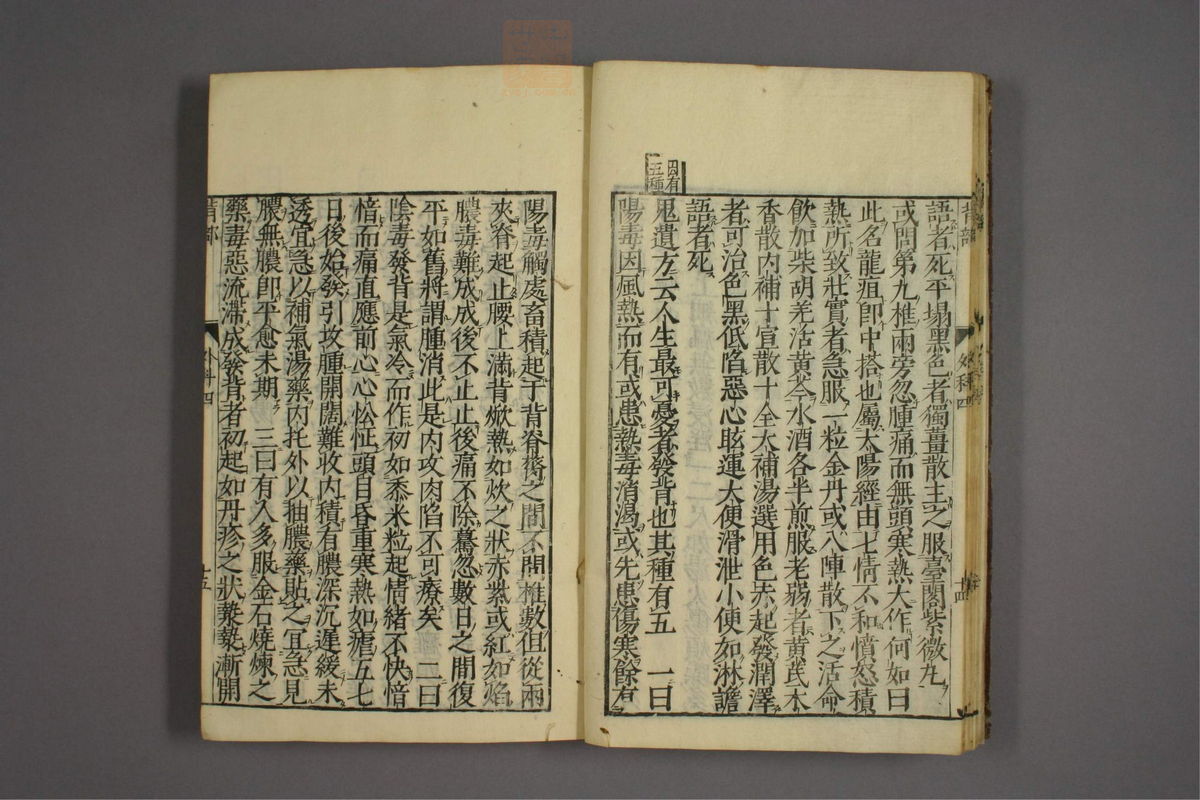 背部
外科四
十四
因有
五種
語者死平塌黑色者獨薑散主之服臺閣紫微丸
或問第九椎兩旁忽腫痛而無頭寒熱大作何如曰
此名龍疽卽中搭也屬太陽經由七情不和憤怒積
熱所致壯實者急服一粒金丹或八陣散下之活命
飲加柴胡羌活黃芩水酒各半煎服老弱者黃芪木
香散內補十宣散十全大補湯選用色赤起發潤澤
者可治色黑低陷惡心眩運大便滑泄小便如淋譫
語者死
鬼遺方云人生最可憂者發背也其種有五　一曰
陽毒因風熱而有或患熱毒消渴或先患傷寒餘有
陽毒觸處畜積起于背脊膂之間不問椎數但從兩
夾脊起止腰上滿背焮熱如炊之狀赤紫或紅如焰
膿毒難成成後不止止後痛不除驀忽數日之間復
平如舊將謂腫消此是內攻肉陷不可療矣　二曰
陰毒發背是氣冷而作初如黍米粒起情緒不快愔
愔而痛直應前心心忪怔頭目昏重寒熱如瘧五七
日後始發引攻腫開闊難收內積有膿深沉遲緩未
透宜急以補氣湯藥內托外以抽膿藥貼之宜急見
膿無膿卽平愈未期　三曰有人多服金石燒煉之
藥毒惡流滯成發背者初起如丹疹之狀漿漿漸開
背部
外科四
十五